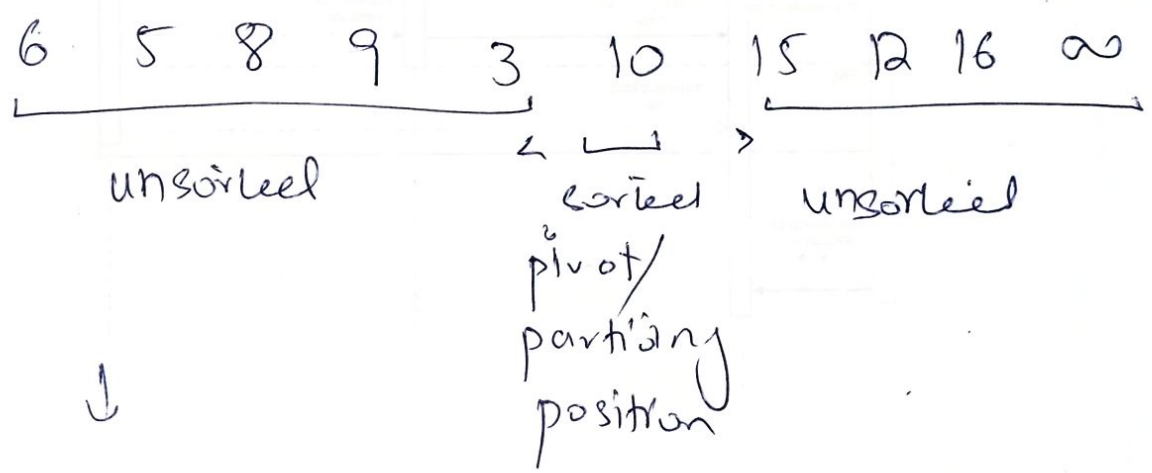 6 5 8 9 3 10 15 12 16 ∞
< >
unsorted sorted unsorted
pivot/
partiang
position